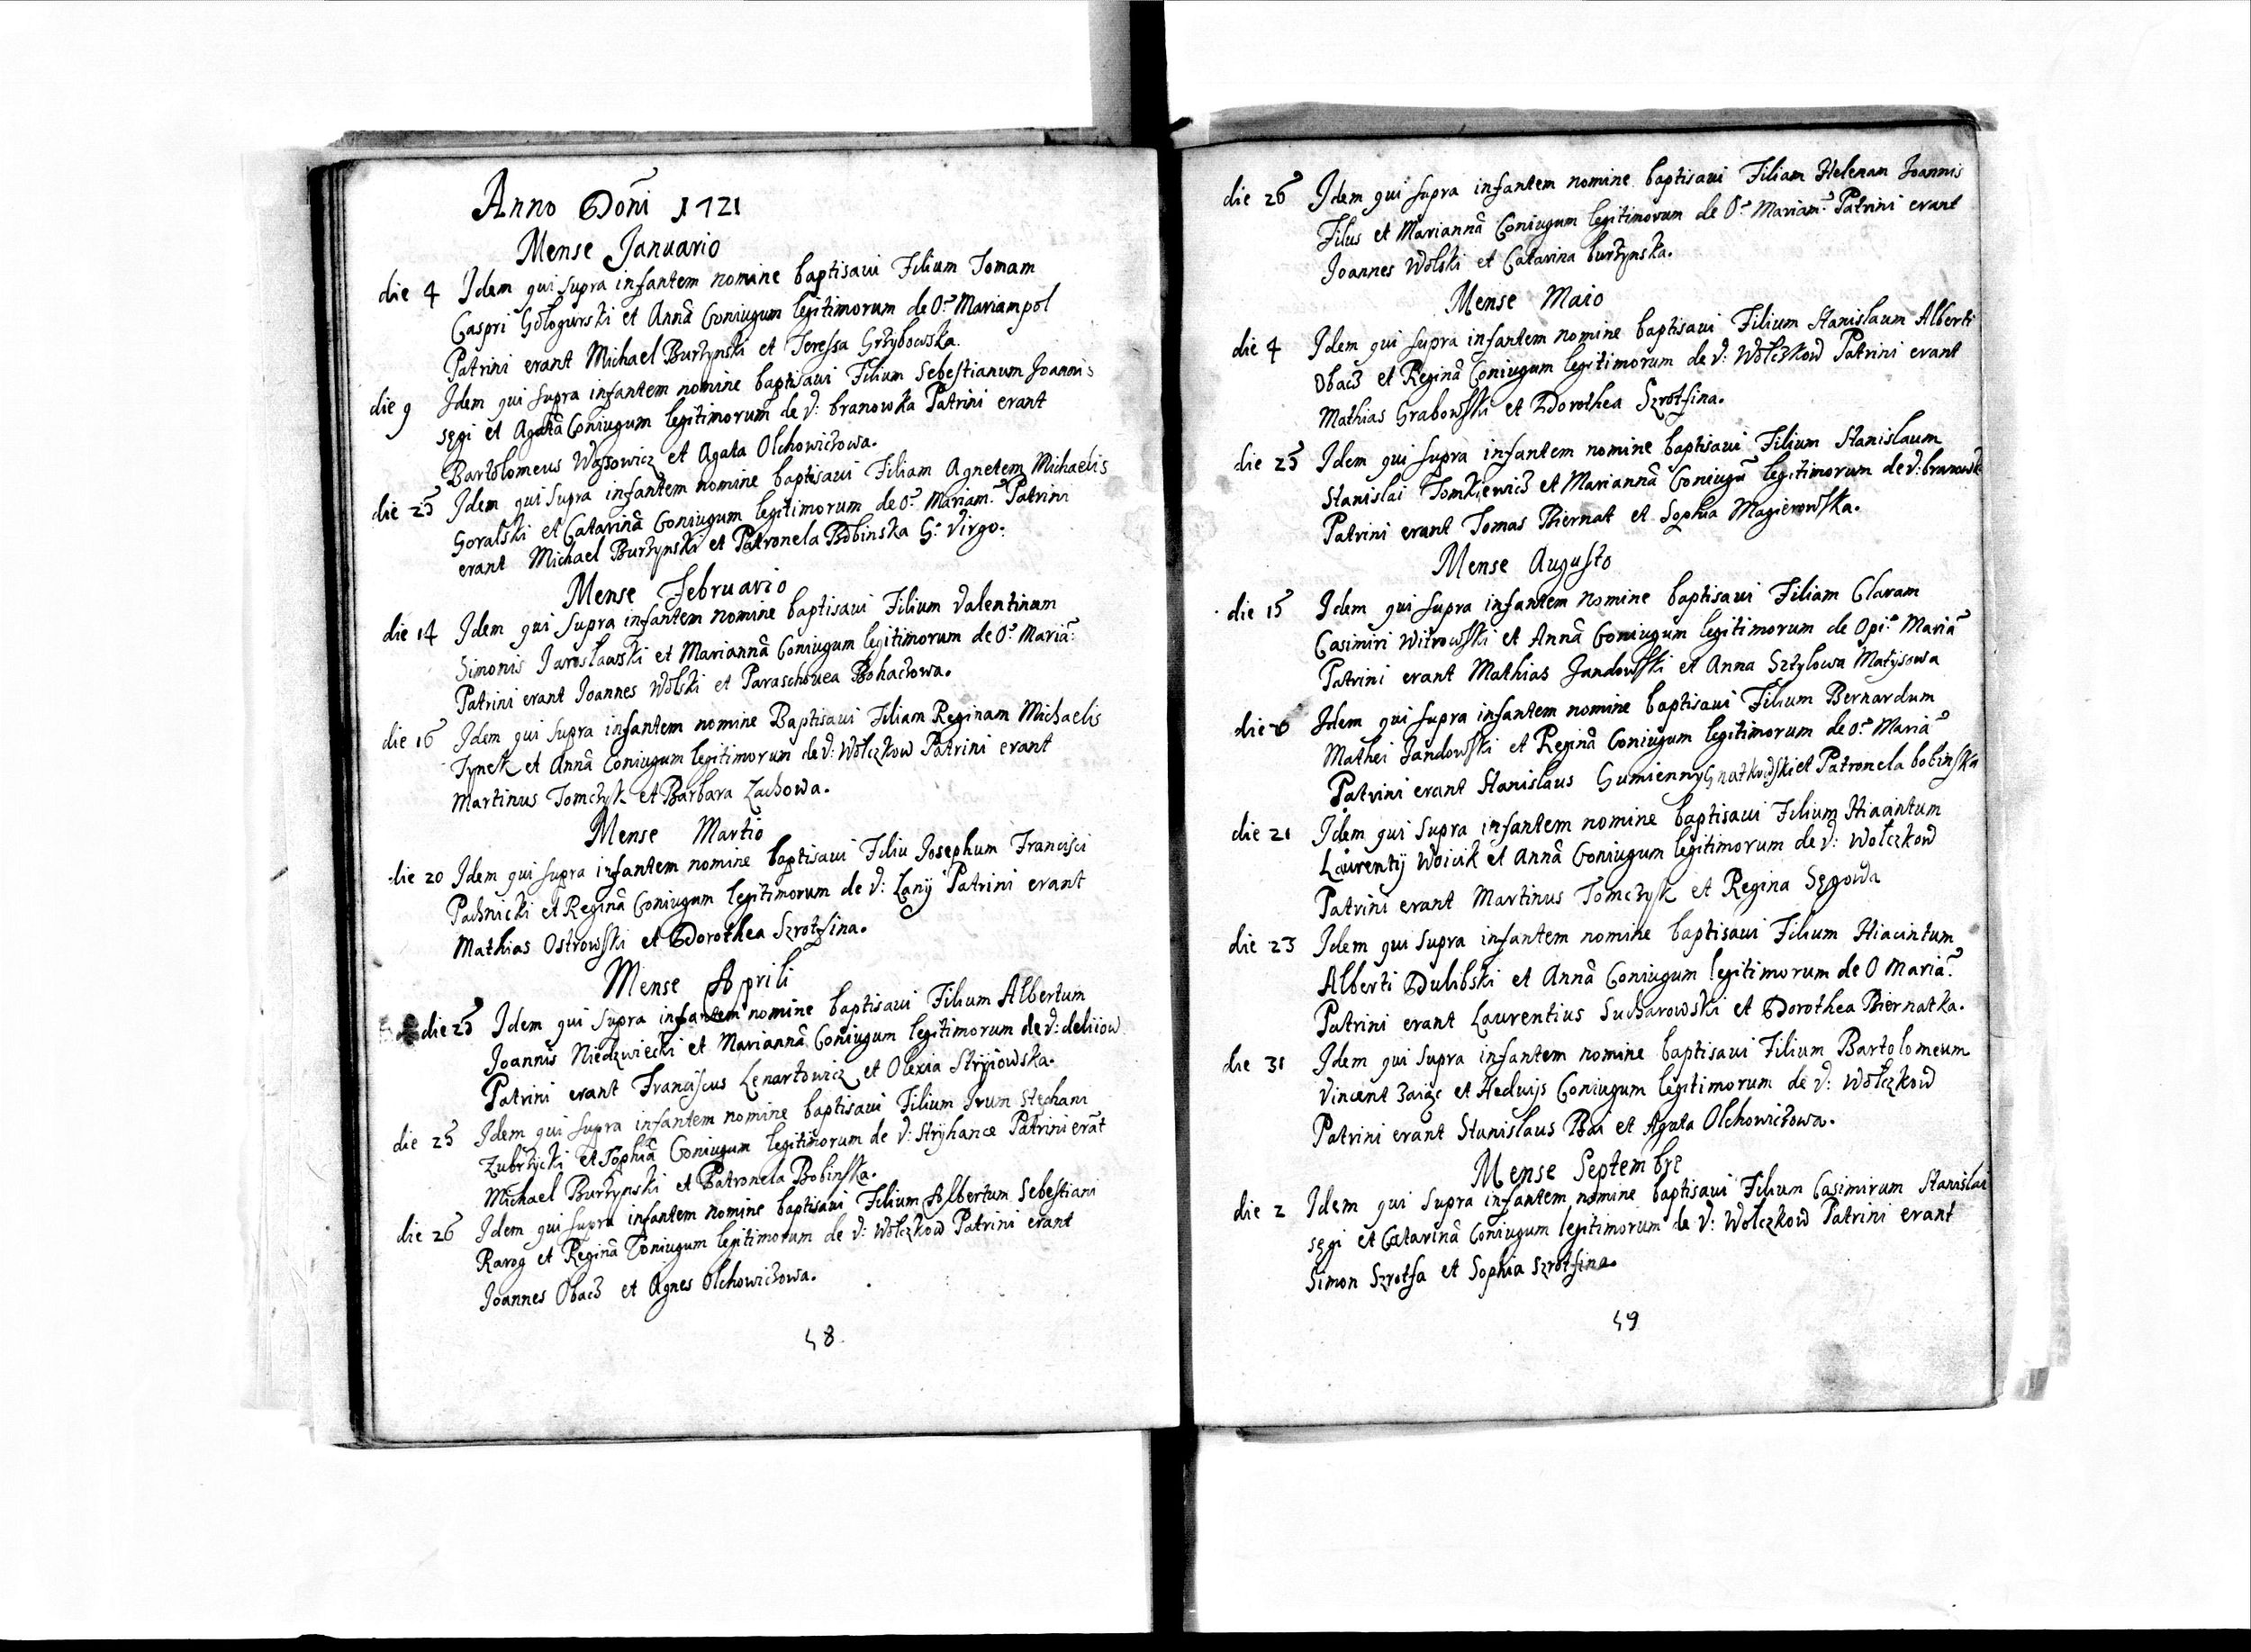 Anno Dõni 1721
Mense Januario
die 4 Idem qui supra infantem nomine baptisavi Filium Tomam
Caspri Gologurski et Annã Coniugum legitimorum de O: Mariampol
Patrini erant Michael Burżynski et Teressa Grżybowska.
die 9 Idem qui supra infantem nomine baptisavi Filium Sebestianum Joannis
sęgi et Agatã Coniugum legitimorum de V: branowka Patrini erant
Bartolomeus Wąsowicz et Agata Olchowiczowa.
die 25 Idem qui supra infantem nomine baptisavi Filiam Agnetem Michaelis
Goralski et Catarinã Coniugum legitimorum de O: Mariam: Patrini
erant Michael Burżynski et Patronela Bobinska G: Virgo.
Mense Februario
die 14 Idem qui supra infantem nomine baptisavi Filium Valentinum
Simonis Jaroslawski et Mariannã Coniugum legitimorum de O: Mariã:
Patrini erant Joannes Wolski et Paraschouea Bohaczowa.
die 16 Idem qui supra infantem nomine Baptisavi Filiam Reginam Michaelis
Tynek et Annã Coniugum legitimorum de V: Wołczkow Patrini erant
Martinus Tomczyk et Barbara Lachowa.
Mense Martio
die 20 Idem qui supra infantem nomine baptisavi Filiu Josephum Francisci
Pachnicki et Reginã Coniugum legitimorum de V: Lany Patrini erant
Mathias Ostrowski et Dorothea Szrotsina.
Mense Aprili
die 25 Idem qui supra infantem nomine baptisavi Filium Albertum
Joannis Niedzwiecki et Mariannã Coniugum legitimorum de V: deliiow
Patrini erant Franciscus Lenartowicz et Olexia Stryiowska.
die 25 Idem qui supra infantem nomine baptisavi Filium Irum Stephani
Zubrżycki et Sophiã Coniugum legitimorum de V: Stryhance Patrini erãt
Michael Burżynski et Patronela Bobinska.
die 26 Idem qui supra infantem nomine baptisavi Filium Albertum Sebestiani
Rarog et Reginã Coniugum legitimorum de V: Wołczkow Patrini erant
Joannes Obacz et Agnes Olchowiczowa.
48
die 26 Idem qui supra infantem nomine baptisavi Filiam Helenam Joannis
Filus et Mariannã Coniugum legitimorum de O: Mariam: Patrini erant
Joannes Wolski et Catarina burżynska.
Mense Maio
die 4 Idem qui supra infantem nomine baptisavi Filium Stanislaum Alberti
Obacz et Reginã Coniugum legitimorum de V: Wołczkow Patrini erant
Mathias Grabowski et Dorothea Szrotsina.
die 25 Idem qui supra infantem nomine baptisavi Filium Stanislaum
Stanislai Tomkiewicz et Mariannã Coniugũ legitimorum de V: branowk
Patrini erant Tomas Biernat et Sophia Magierowska.
Mense Augusto
die 15 Idem qui supra infantem nomine baptisavi Filiam Claram
Casimiri Witrowski et Annã Coniugum legitimorum de Opi: Mariã
Patrini erant Mathias Jandowski et Anna Sztylowa Matysowa
die Idem qui supra infantem nomine baptisavi Filium Bernardum
Mathei Jandowski et Reginã Coniugum legitimorum de O: Mariã
Patrini erant Stanislaus Gumienny Gnatkowski et Patronela bobinska
die 21 Idem qui supra infantem nomine baptisavi Filium Hiacintum
Laurentij Woicik et Annã Coniugum legitimorum de V: Wołczkow
Patrini erant Martinus Tomczyk et Regina Sęgowa
die 23 Idem qui supra infantem nomine baptisavi Filium Hiacintum
Alberti Dulibski et Annã Coniugum legitimorum de O Mariã:
Patrini erant Laurentius Sucharowski et Dorothea Biernatka.
die 31 Idem qui supra infantem nomine baptisavi Filium Bartolomeum
Vincent Zaiąc et Hedvijs Coniugum legitimorum de V: Wołczkow
Patrini erant Stanislaus Bai et Agata Olchowiczowa.
Mense Septembre
die 2 Idem qui supra infantem nomine baptisavi Filium Casimirum Stanislai
sęgi et Catarinã Coniugum legitimorum de V: Wołczkow Patrini erant
Simon Szrotsa et Sophia Szrotsina.
49